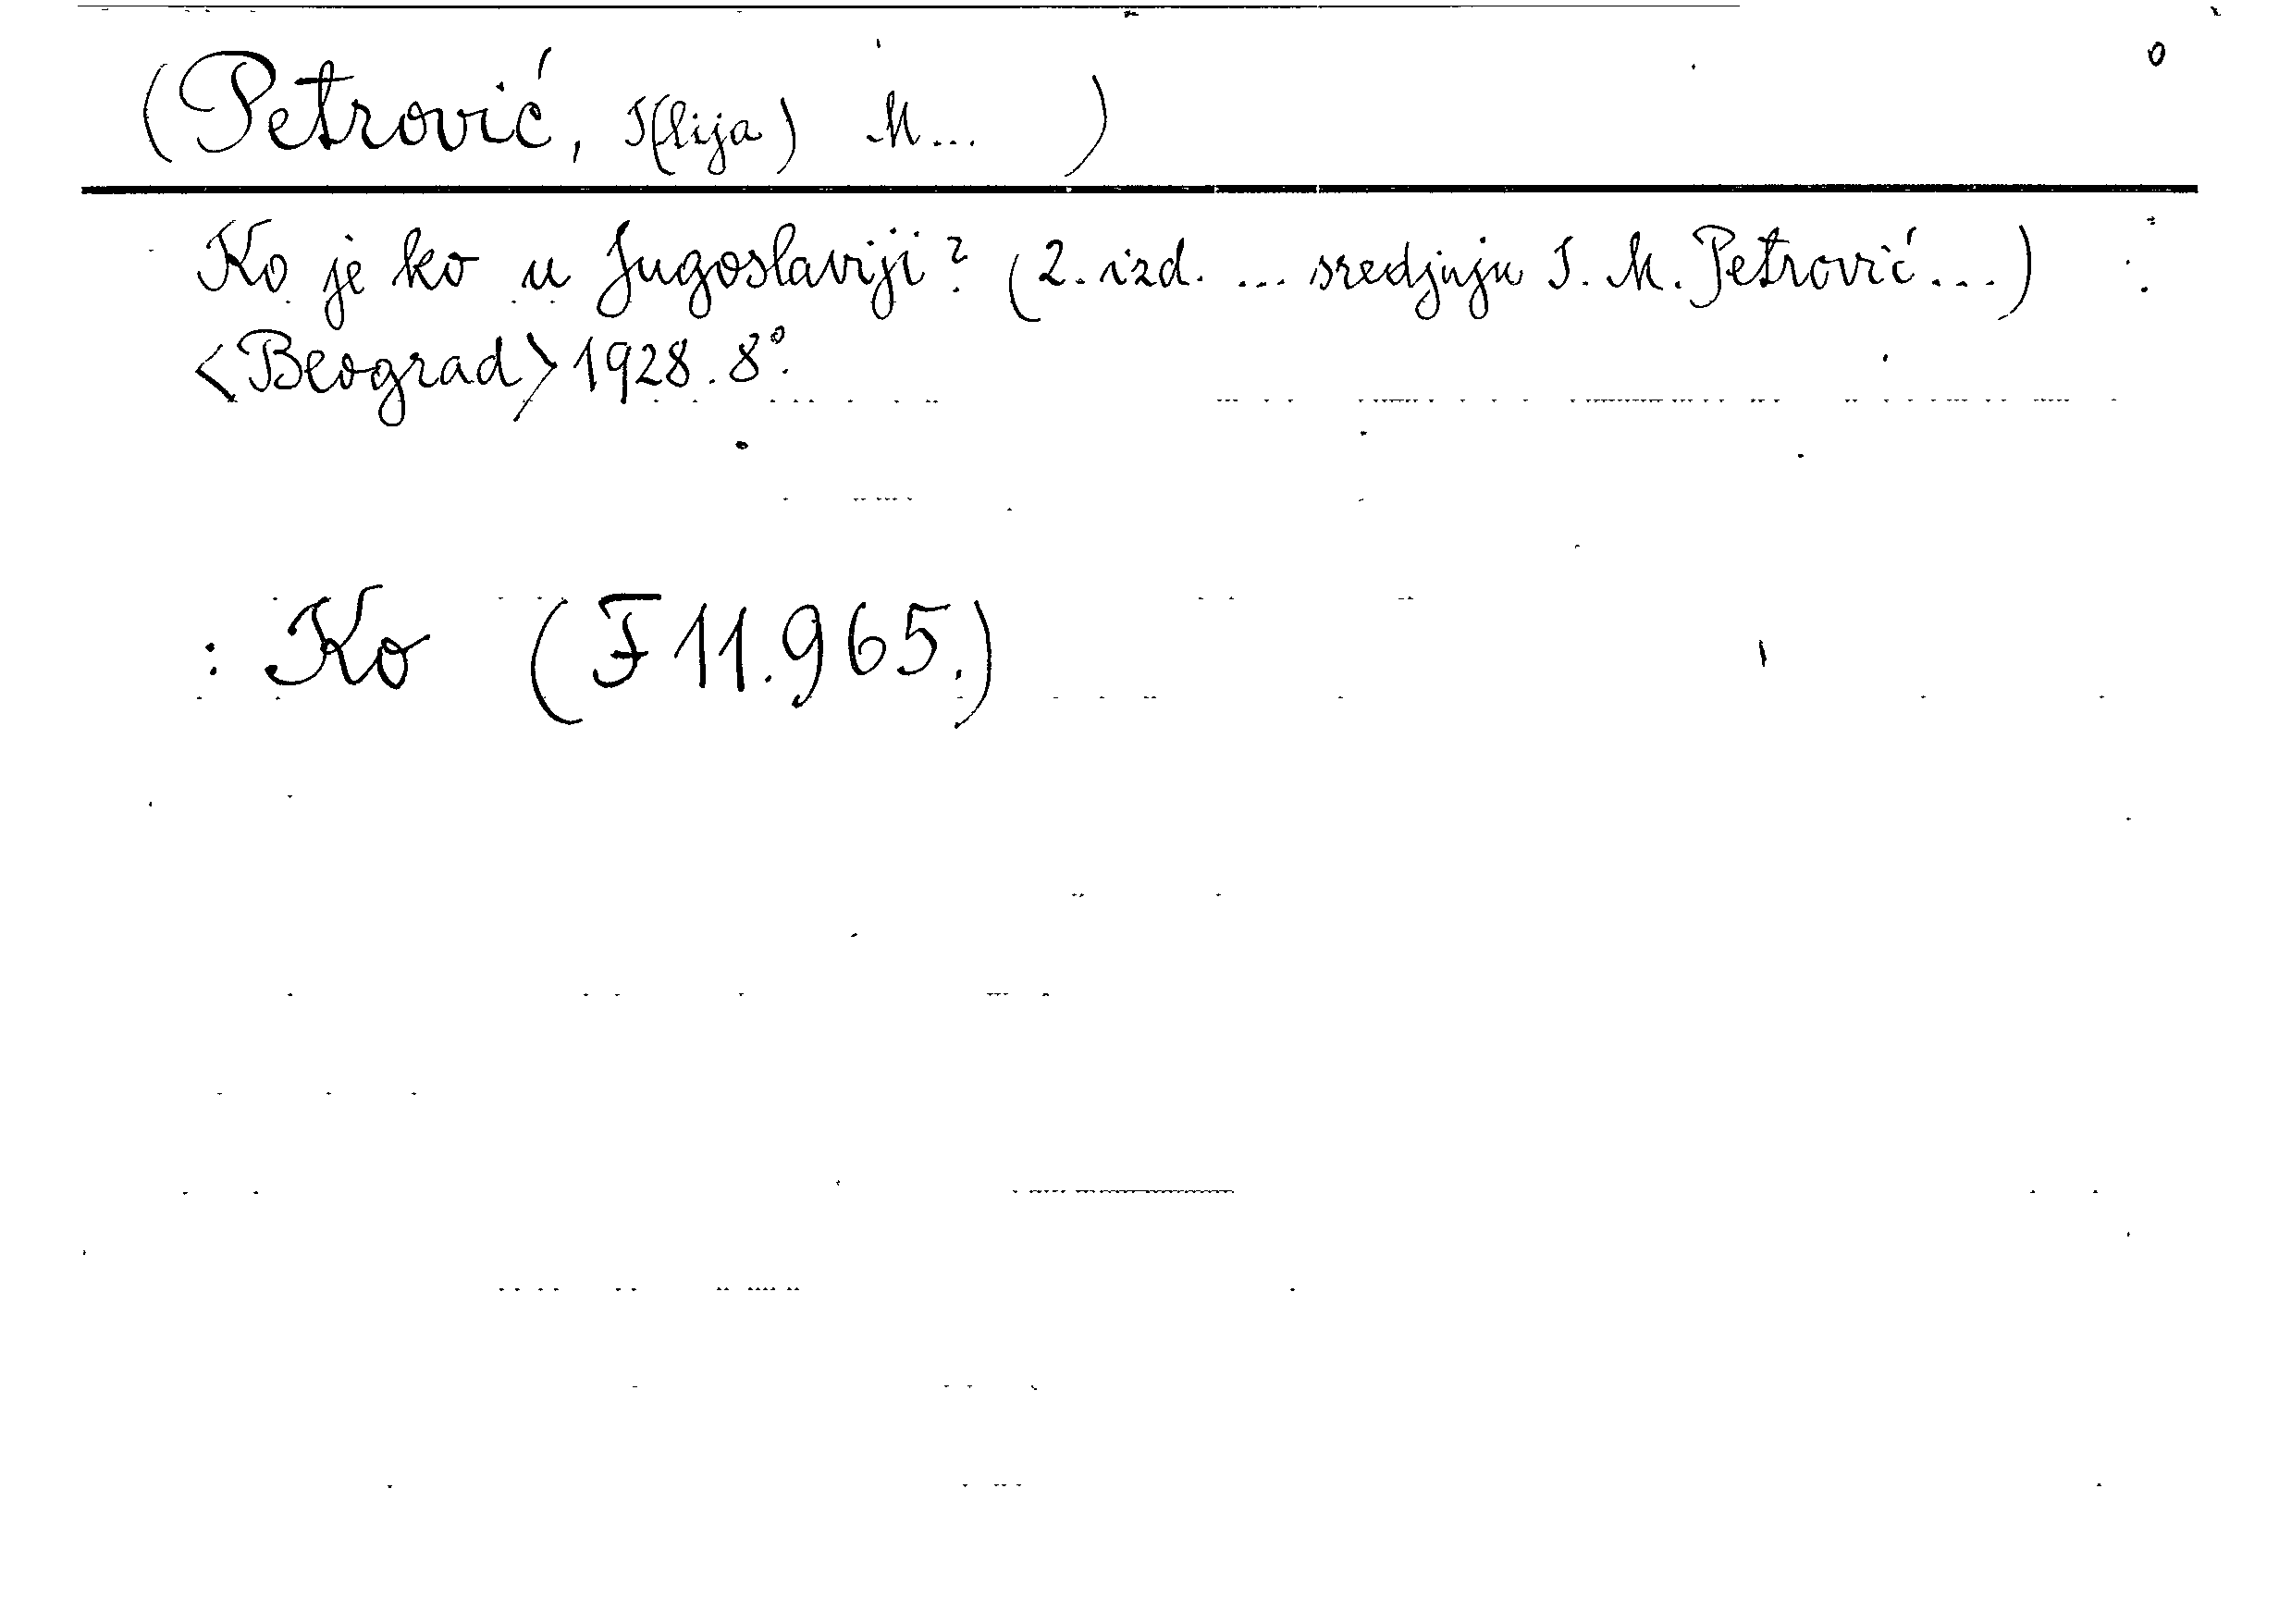 (Petrović, I(lija) M... )
Ko je ko u Jugoslaviji? (2. izd. ... sredjuju I. M. Petrović...)
<Beograd> 1928. 8°.
: Ko (F 11.965.)